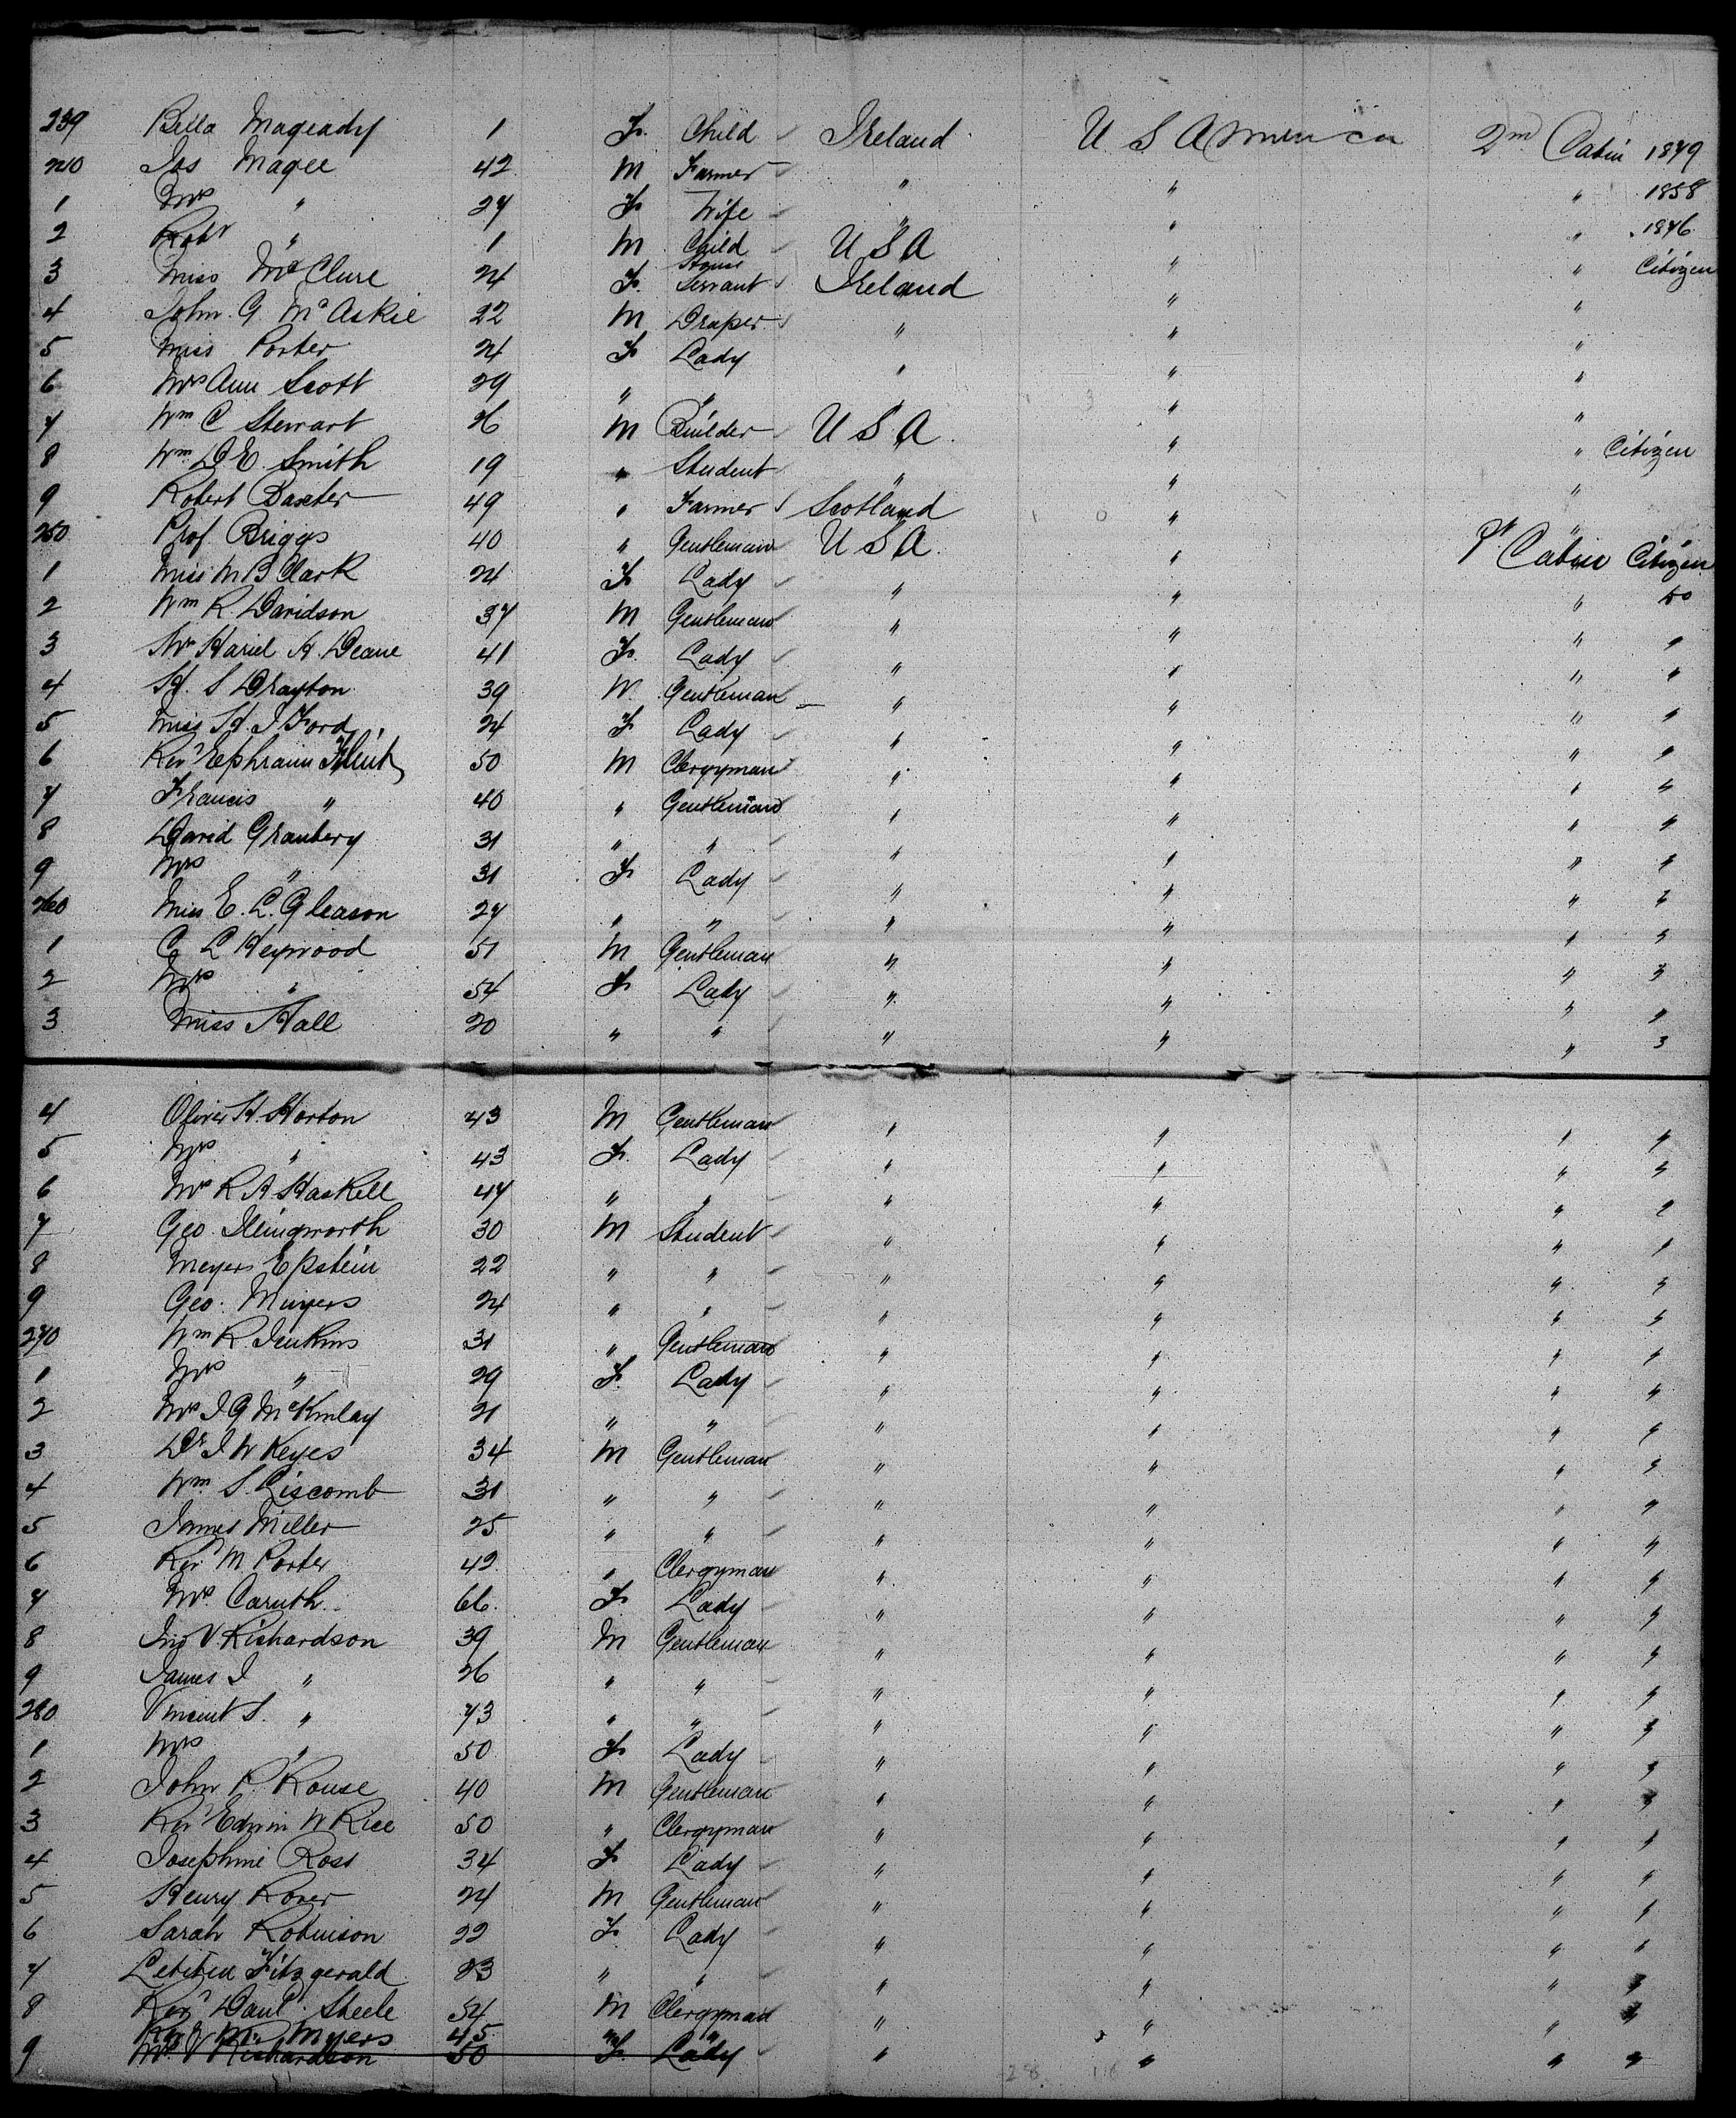 239 Bella Mageady 1 F. Child Ireland U S America 2nd Cabin 1879
240 Jas Magee 42 M Farmer " " " 1858
1 Mrs " 27 F Wife " " " 1876
2 Robt " 1 M Child U S A " " Citizen
3 Miss McClure 24 F. House Servant Ireland " "
4 John G McAskie 22 M Draper " " "
5 Miss Porter 24 F Lady " " "
6 Mrs Ann Scott 29 " " " " "
7 Wm C Stewart 26 M Builder U S A " " Citizen
8 Wm D E Smith 19 " Student " " "
9 Robert Baxter 49 " Farmer Scotland " "
250 Prof Briggs 40 " Gentleman U S A " 1st Cabin Citizen
1 Miss M B Clark 24 F Lady " " " Do
2 Wm R. Davidson 37 M Gentleman " " " "
3 Mrs Hariel H. Deane 41 F. Lady " " " "
4 H. S Drayton 39 M. Gentleman " " " "
5 Miss H. I Ford 24 F Lady " " " "
6 Rev Ephraim Flint 50 M Clergyman " " " "
7 Francis " 40 " Gentleman " " " "
8 David Granbery 31 " " " " " "
9 Mrs " 31 F Lady " " " "
260 Miss E. L. Gleason 27 " " " " " "
1 C L Heywood 51 M Gentleman " " " "
2 Mrs " 54 F Lady " " " "
3 Miss Hall 20 " " " " " "
4 Oliver H. Horton 43 M Gentleman " " " "
5 Mrs " 43 F. Lady " " " "
6 Mrs R A Haskell 47 " " " " " "
7 Geo. Illingworth 30 M Student " " " "
8 Meyers Epstein 22 " " " " " "
9 Geo. Muyers 24 " " " " " "
270 Wm R. Jenkins 31 " Gentleman " " " "
1 Mrs " 29 F. Lady " " " "
2 Mrs J G McKinlay 21 " " " " " "
3 Dr J W Keyes 34 M Gentleman " " " "
4 Wm. S. Liscomb 31 " " " " " "
5 James Miller 25 " " " " " "
6 Rev M Porter 42 " Clergyman " " " "
7 Mrs. Caruth 66. F Lady " " " "
8 Jno V Richardson 39 M Gentleman " " " "
9 James I " 26 " " " " " "
280 Vincent S. " 73 " " " " " "
1 Mrs " 50 F Lady " " " "
2 John P. Rouse 40 M Gentleman " " " "
3 Rev Edwin W Rice 50 " Clergyman " " " "
4 Josephine Ross 34 F Lady " " " "
5 Henry Rover 24 M Gentleman " " " "
6 Sarah Robinson 22 F. Lady " " " "
7 Letitia Fitzgerald 23 " " " " " "
8 Rev Danl. Steele 54 M Clergyman " " " "
Myers 45 " "
9 Mrs V Richardson 50 F. Lady " " " "